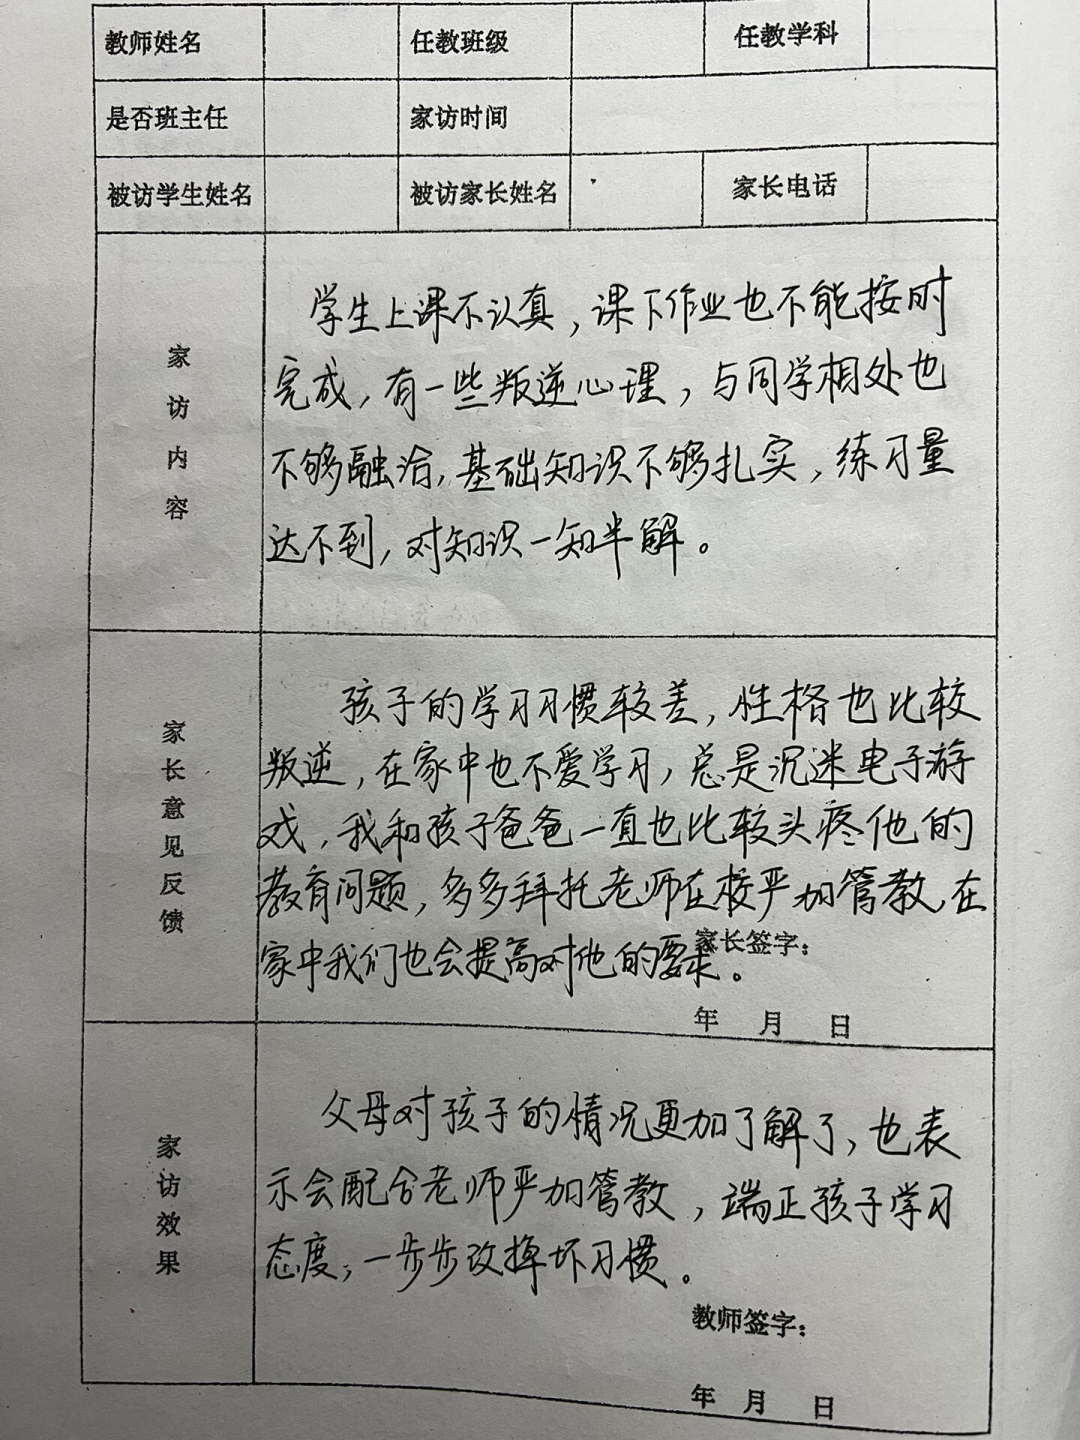 教师姓名 任教班级 任教学科
是否班主任 家访时间
被访学生姓名 被访家长姓名 家长电话
家访内容
学生上课不认真，课下作业也不能按时
完成，有一些叛逆心理，与同学相处也
不够融洽，基础知识不够扎实，练习量
达不到，对知识一知半解。
家长意见反馈
孩子的学习习惯较差，性格也比较
叛逆，在家中也不爱学习，总是沉迷电子游
戏，我和孩子爸爸一直也比较头疼他的
教育问题，多多拜托老师在校严加管教，在
家中我们也会提高对他的要求。
家长签字：
年 月 日
家访效果
父母对孩子的情况更加了解了，也表
示会配合老师严加管教，端正孩子学习
态度，一步步改掉坏习惯。
教师签字：
年 月 日